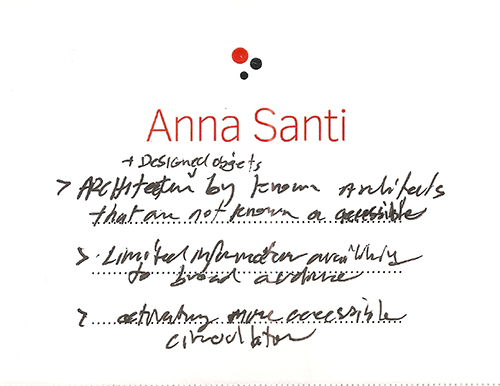 Anna Santi
+ Designed objects
> ARCHitecture by known Architects
that are not known or accessible
> Limited information availability
to broad audience
> activating more accessible
circulation